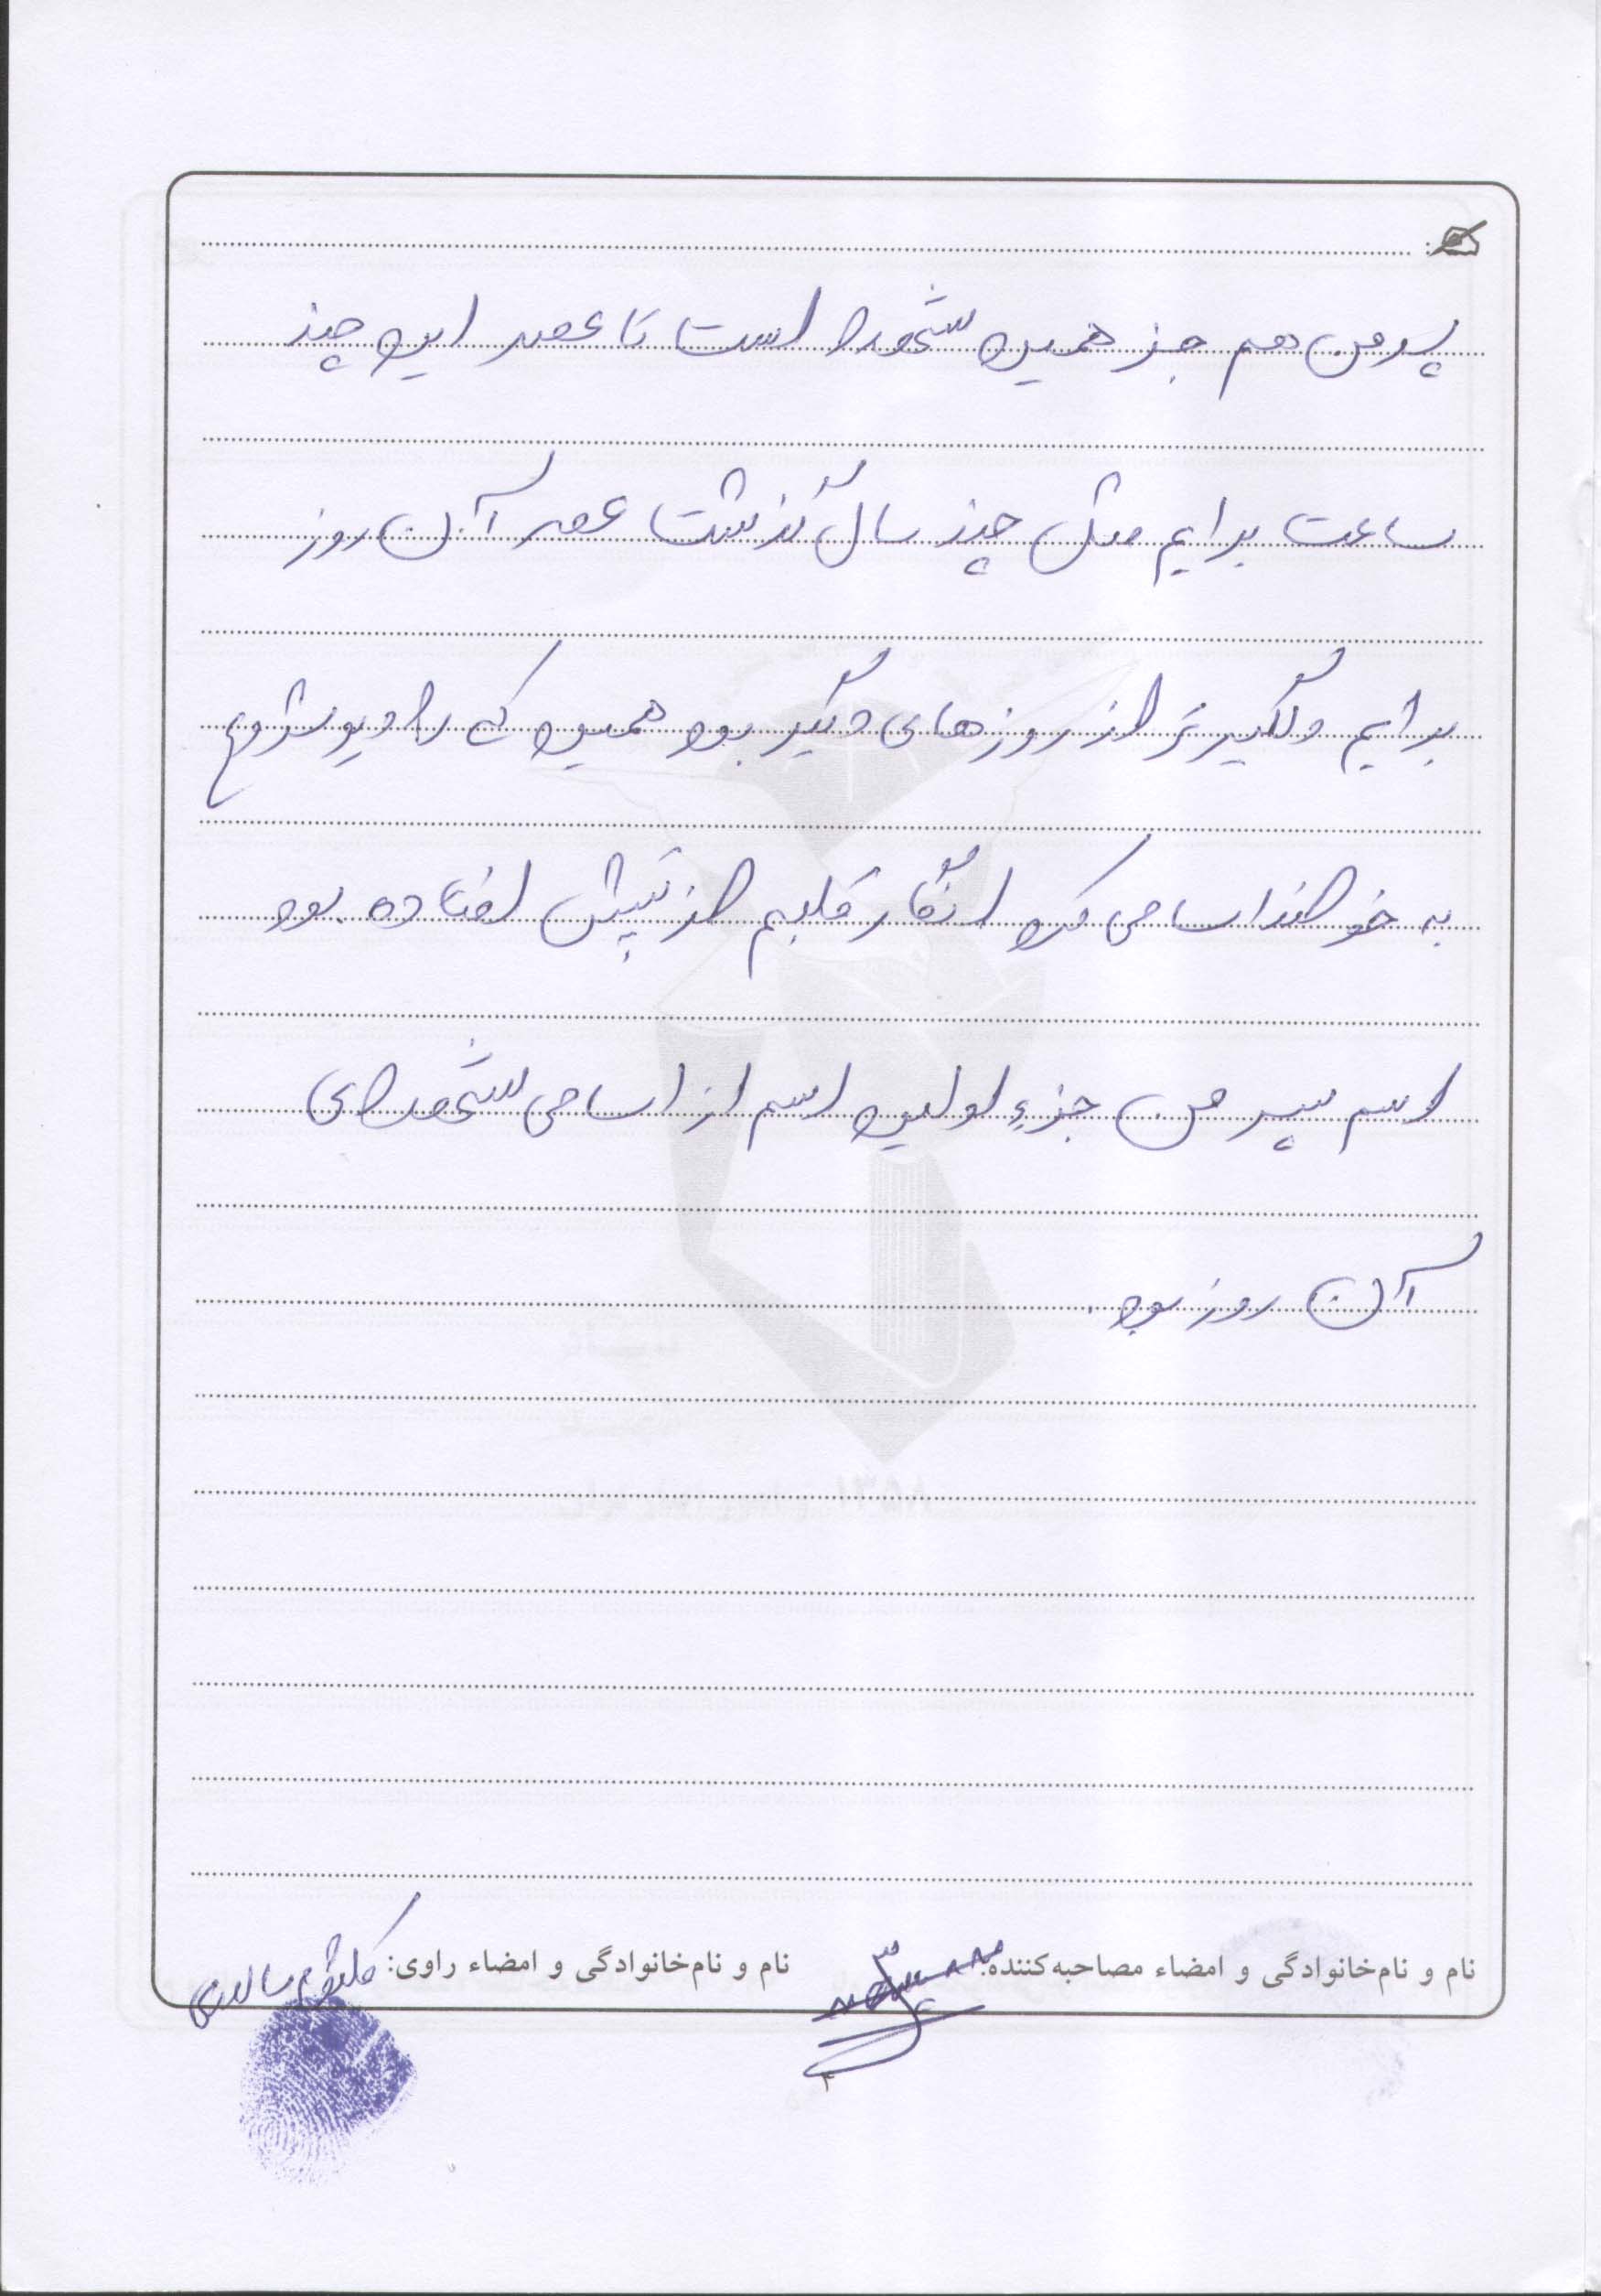 پسر من هم جز همین شهدا است تا عصر این چند
ساعت برایم مثل چند سال گذشت عصر آن روز
برایم دلگیرتر از روزهای دیگر بود همین که رادیو شروع
به خواندن اسامی کرد انگار قلبم از تپش افتاده بود
اسم پسر من جزء اولین اسم از اسامی شهدای
آن روز بود.
نام و نام‌خانوادگی و امضاء مصاحبه‌کننده: نام و نام‌خانوادگی و امضاء راوی: کلثوم
۴